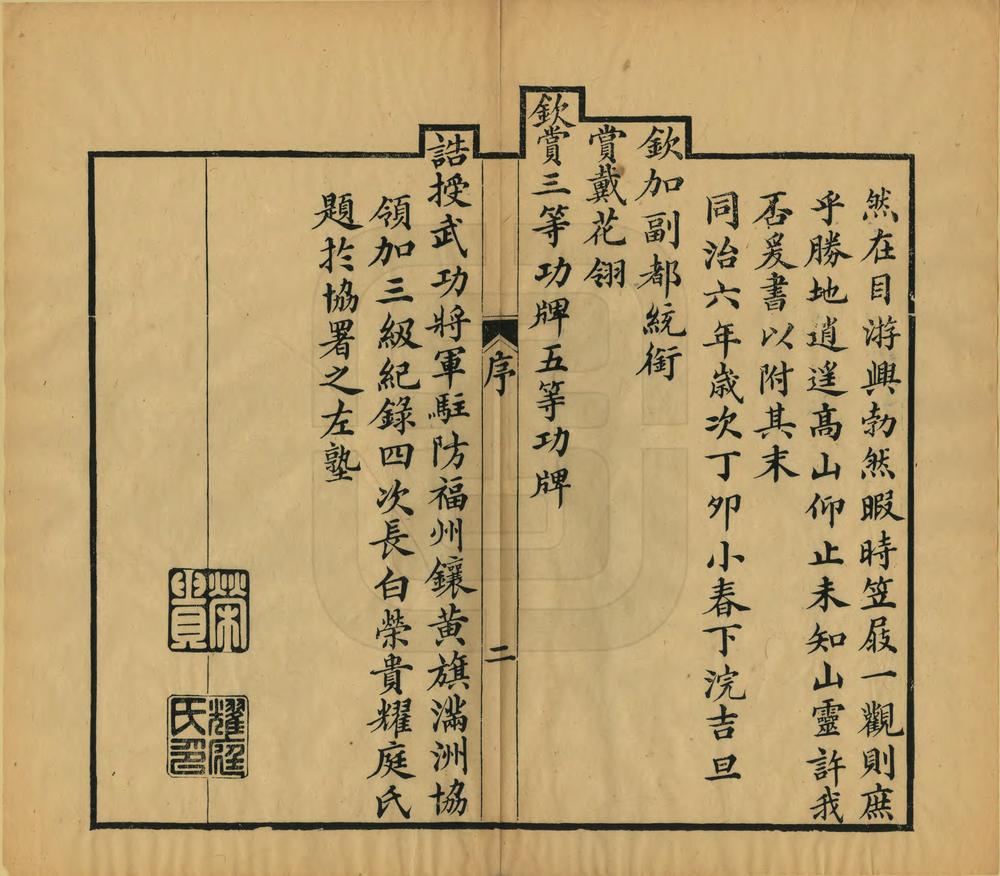 然在目游興勃然暇時笠屐一觀則庶
乎勝地逍遥高山仰止未知山靈許我
否爰書以附其末
同治六年歲次丁卯小春下浣吉旦
欽加副都統銜
賞戴花翎
欽賞三等功牌五等功牌
序
二
誥授武功將軍駐防福州鑲黃旗滿洲協
領加三級紀錄四次長白榮貴耀庭氏
題於協署之左塾
榮貴
耀庭氏印